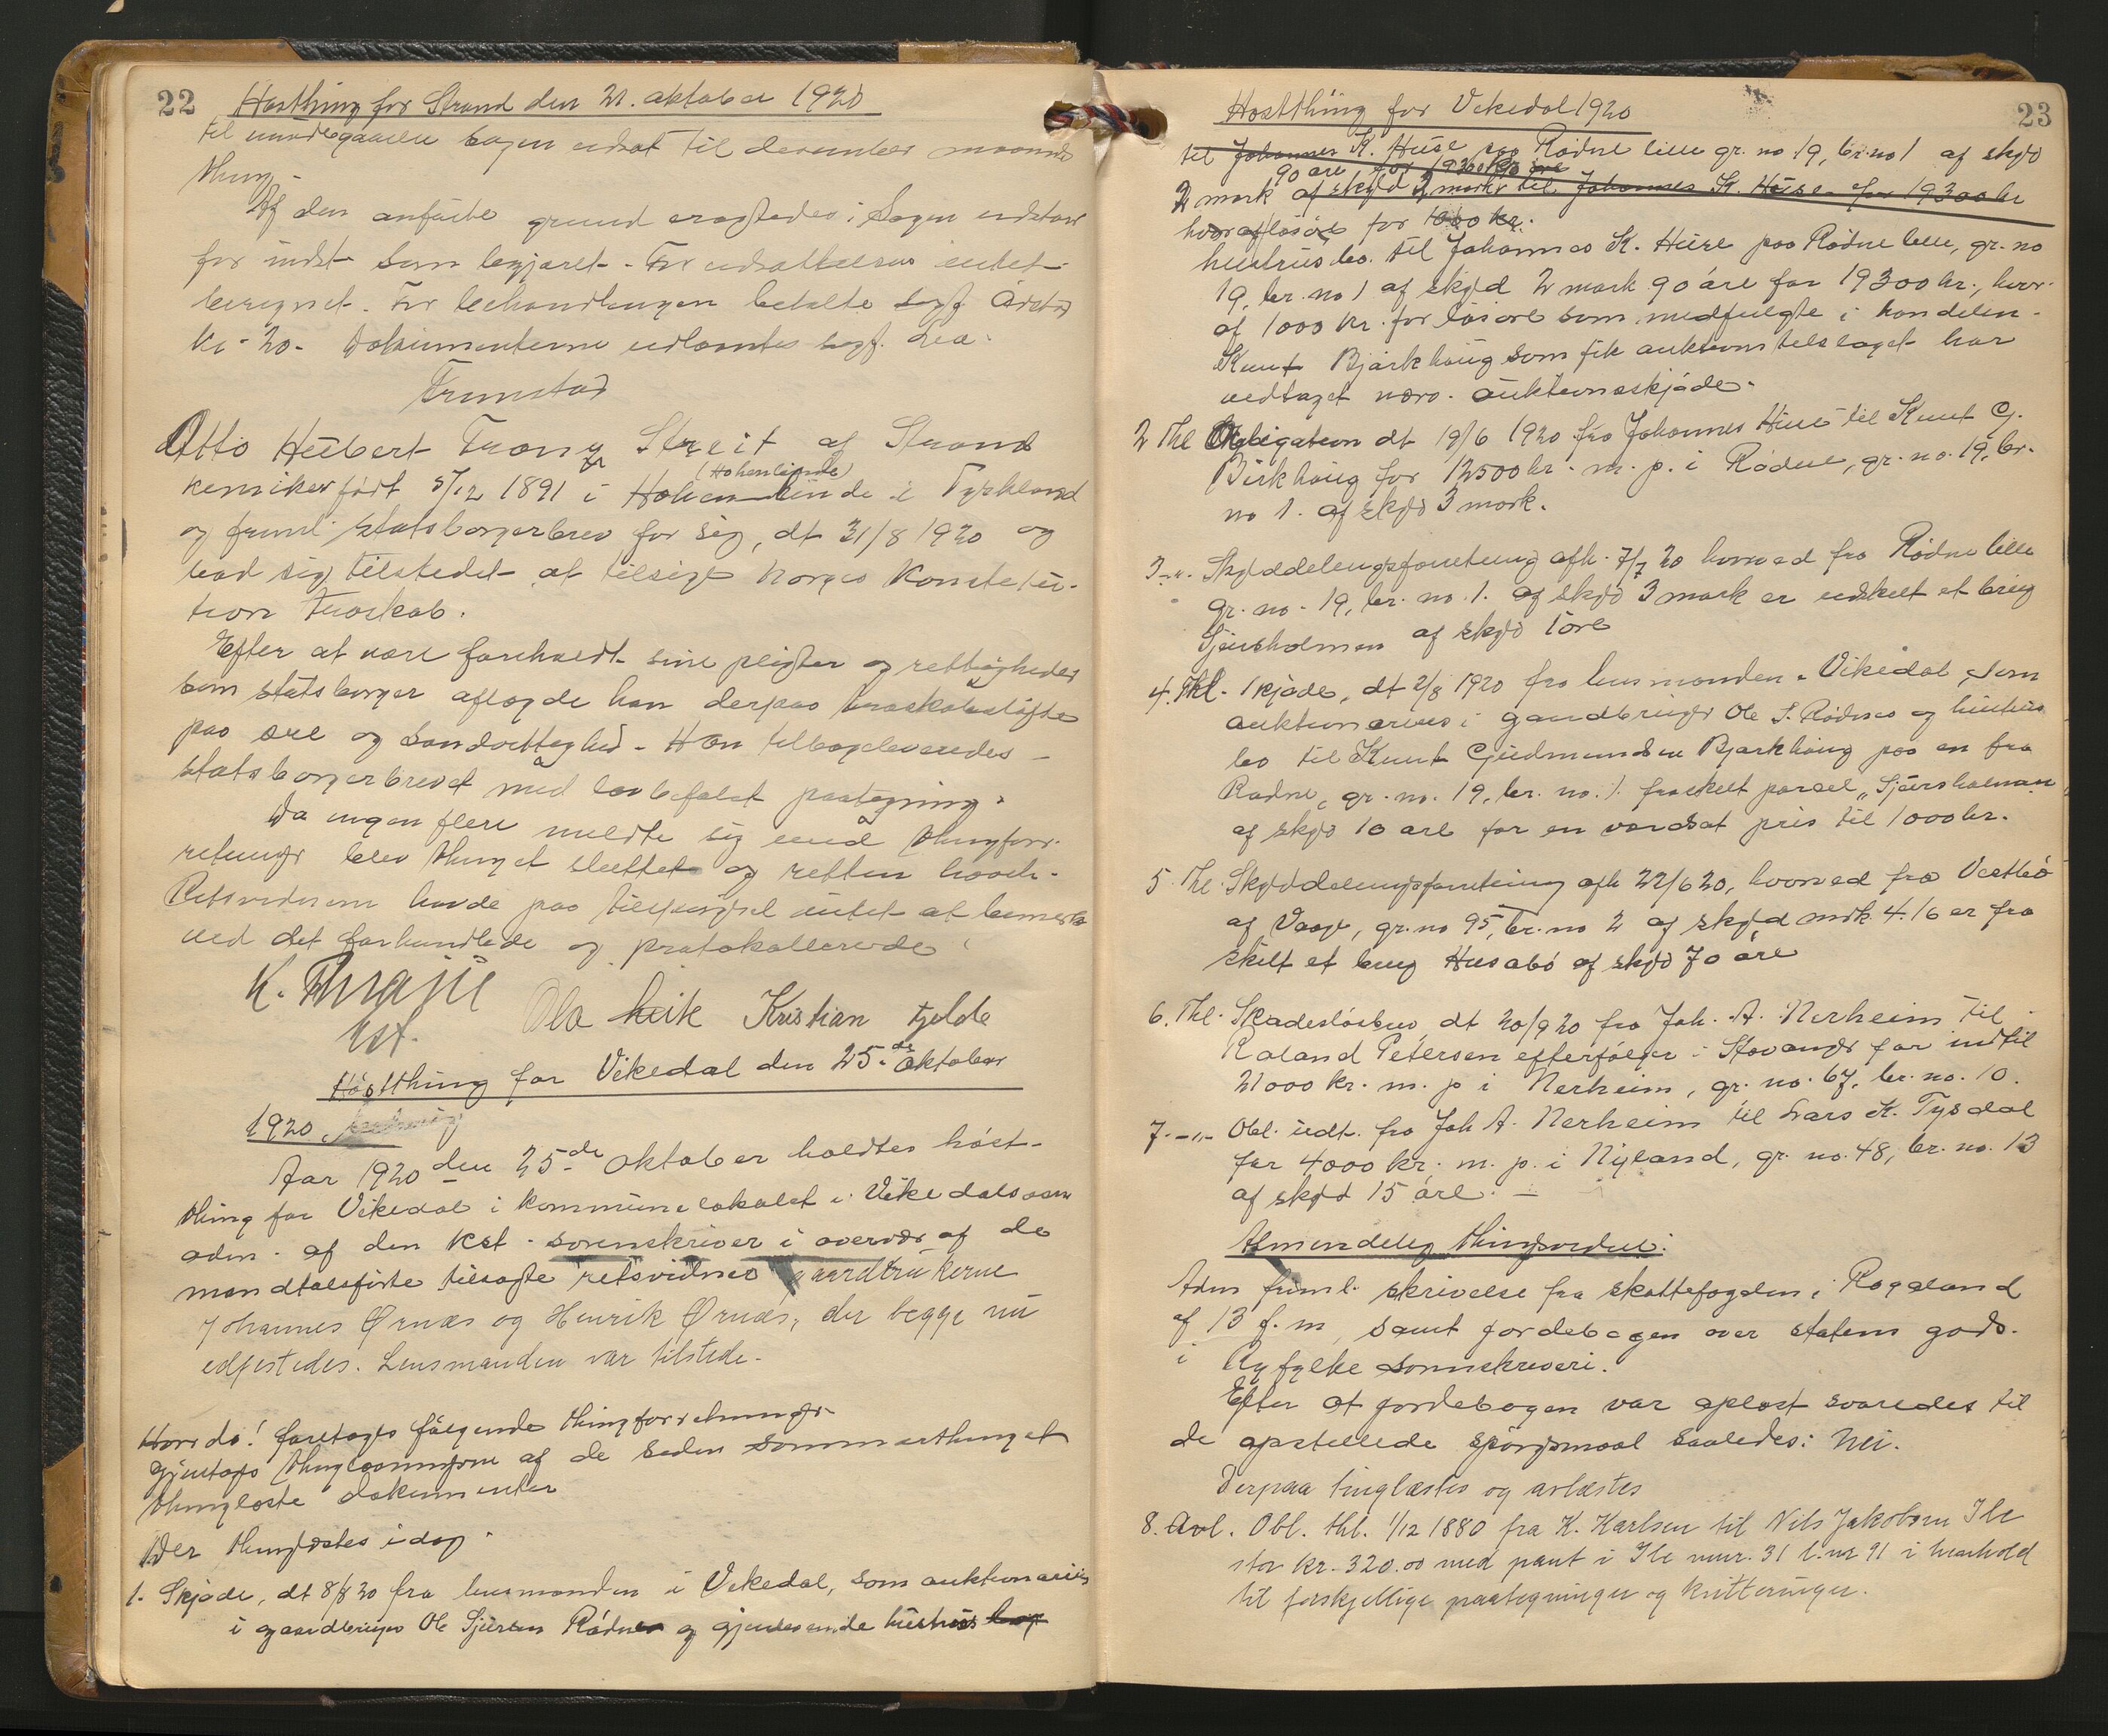 22 Høstthing for Strand den 21. oktober 1920
til imødegaaelse sagen udsat til december maaneds
thing -
Af den anførte grund eragtedes: Sagen udstaar
for indst som begjæret. For udsættelsen intet
beregnet. For behandlingen betalte sagf. Årstad
kr. 20. Dokumenterne udlaantes sagf. Lea.
Fremstod
Otto Hubert Franz Streit af Strand
(Hohenlinde)
kemiker født 5/12 1891 i Hohenlinde i Tyskland
og freml. statsborgerbrev for sig, dt 31/8 1920 og
bad sig tilstedet at tilsige Norges Konstitu-
tion troskab.
Efter at være foreholdt sine pligter og rettigheder
som statsborger aflagde han derpaa troskabsløfte
paa ære og samvittighed. Han tilbageleveredes
statsborgerbrevet med lovbefalet paategning.
Da ingen flere meldte sig med thingfor-
retninger blev thinget sluttet og retten hævet.
Retsvidnerne havde paa tilspørgsel intet at bemerke
ved det forhandlede og protokollerede
K. Thrane
kst.
Ola Leik Kristian Tjelde
Høstthing for Vikedal den 25.de oktober
1920.
Aar 1920 den 25.de oktober holdtes høst-
thing for Vikedal i kommunelokalet i Vikedalsosen
adm. af den kst. sorenskriver i overvær af de
mandtalsførte tilsagte retsvidner gaardbrukerne
Johannes Ørnæs og Henrik Ørnæs, der begge nu
edfestedes. Lensmanden var tilstede.
Hvorda! foretoges følgende thingforretninger
Gjentoges thinglæsningen af de siden sommerthinget
thinglæste dokumenter
Der thinglæstes idag.
1. Skjøde, dt 8/8 20 fra lensmanden i Vikedal, som auktionarius
i gaardbruger Ole Sjursen Rødnes og gjenlevende hustrus bo
23
Høstthing for Vikedal 1920
til Johannes K. Huse paa Rødne lille gr. no 19, br. no 1 af skyld
90 øre for 19300 kr
2 mark af skyld 2 mark til Johannes K. Huse for 19300 kr
hvoraf løsøre for 1000 kr.
hustrus bo. til Johannes K. Huse paa Rødne lille, gr. no
19, br. no 1 af skyld 2 mark 90 øre for 19300 kr., hvor-
af 1000 kr. for løsøre som medfulgte i handelen.
Knut Bjørkhaug som fik auktionstilslaget har
vedtaget nærv. auktionsskjøde.
2 Thl Obligation dt 19/6 1920 fra Johannes Huse til Knut G.
Birkhaug for 12500 kr. m. p. i Rødne, gr. no. 19, br.
no 1. af skyld 3 mark.
3 -"- Skylddelingsforretning afh. 7/7 20 hvorved fra Rødne lille
gr. no. 19, br. no. 1. af skyld 3 mark er udskilt et brug
Sjursholmen af skyld 10 øre
4. Thl. Skjøde, dt 2/8 1920 fra lensmanden i Vikedal, som
auktionarius i gaardbruger Ole S. Rødnes og hustrus
bo til Knut Gudmundsen Bjørkhaug paa en fra
Rødne, gr. no. 19, br. no. 1. fraskilt parsel „Sjursholmen"
af skyld 10 øre for en værdsat pris til 1000 kr.
5. Thl. Skylddelingsforretning afh 22/6 20, hvorved fra Vestbø
af Vaage, gr. no 95, br. no 2 af skyld mrk. 4.16 er fra
skilt et brug Husabø af skyld 70 øre
6. Thl. Skadesløsbrev dt 20/9 20 fra Joh. A. Nerheim til
Roland Petersen efterfølger i Stavanger for indtil
21000 kr. m. p i Nerheim, gr. no. 67, br. no. 10.
7. -"- Obl. udt. fra Joh A. Nerheim til Lars K. Tysdal
for 4000 kr. m. p. i Nyland, gr. no. 48, br. no. 13
af skyld 15 øre. -
Almindelig thingsvidne:
Adm freml. skrivelse fra skattefogden i Rogaland
af 13 f. m, samt jordebogen over statens gods.
i Ryfylke sorenskriveri.
Efter at jordebogen var oplæst svaredes til
de opstillede spørgsmaal saaledes: Nei.
Derpaa tinglæstes og avlæstes
8. Avl. Obl. thl. 1/12 1880 fra K. Karlsen til Nils Jakobsen Ile
stor kr. 320.00 med pant i Ile mnr. 31 l. nr 91 i henhold
til forskjellige paategninger og kvitteringer.